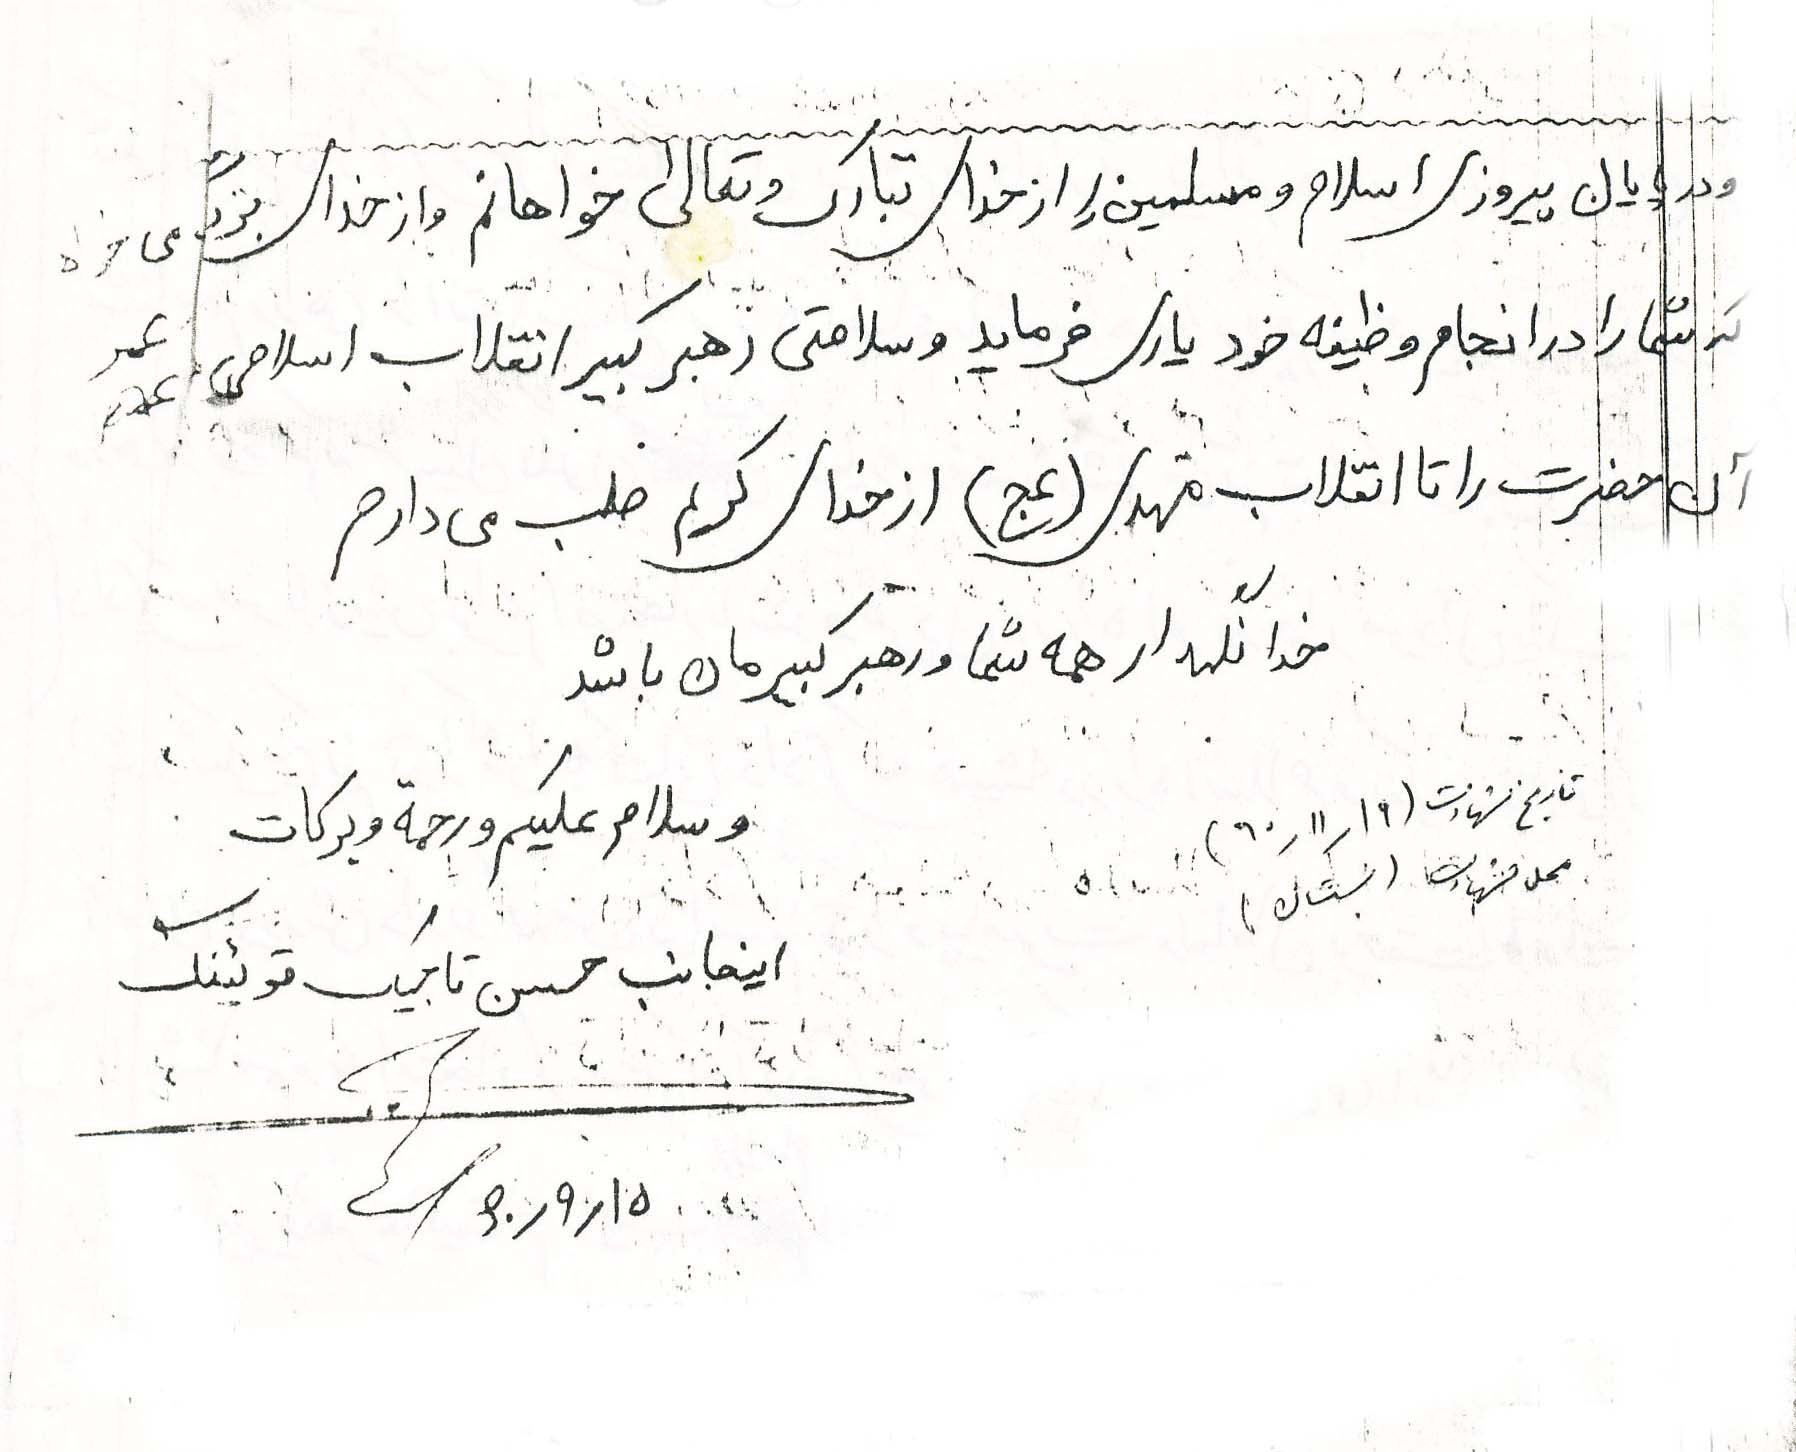 و در پایان پیروزی اسلام و مسلمین را از خدای تبارک و تعالی خواهانم و از خدای بزرگ می خواه
که شما را در انجام وظیفه خود یاری فرماید و سلامتی رهبر کبیر انقلاب اسلامی عمر
آن حضرت را تا انقلاب مهدی (عج) از خدای کریم طلب می دارم
خدا نگهدار همه شما و رهبر کبیرمان باشد
وسلام علیکم و رحمة و برکات
تاریخ شهادت (۱۹ر۱۱ر۶۰)
محل شهادت (بستان)
اینجانب حسن تاجیک
۱۵ر۹ر۶۰